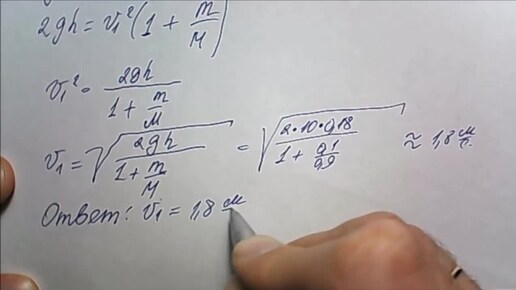 2gh = v₁²(1 + m/M)
v₁² = 2gh/(1 + m/M)
v₁ = √(2gh/(1 + m/M)) = √(2·10·0,18/(1 + 0,1/0,9)) ≈ 1,8 м/с.
Ответ: v₁ = 1,8 м